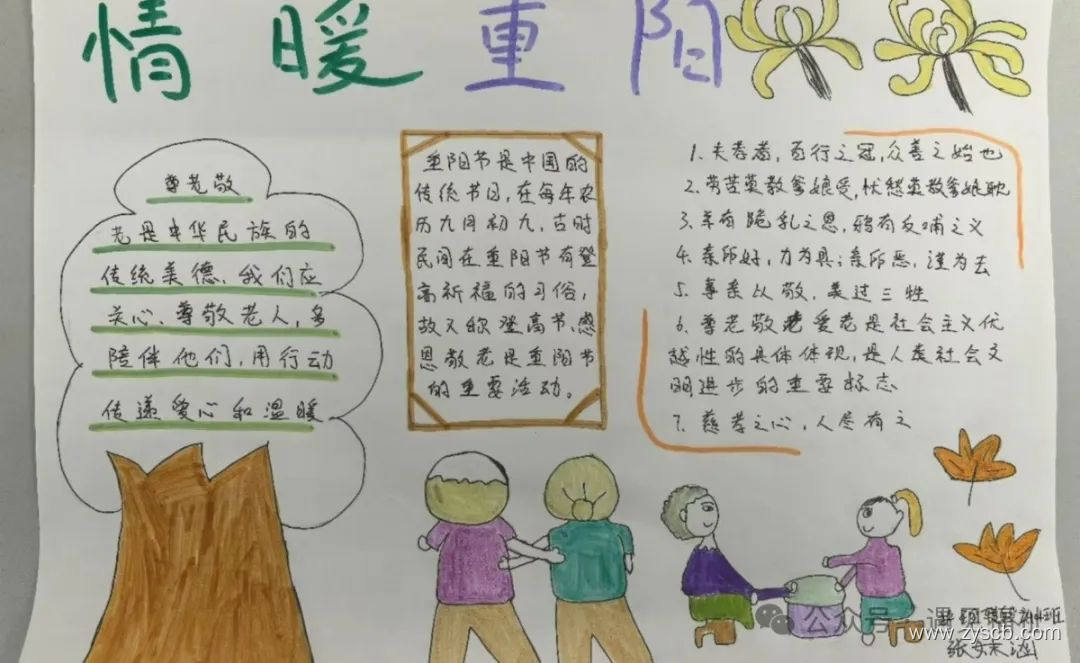 情暖重阳
尊老敬
老是中华民族的
传统美德，我们应
关心、尊敬老人，多
陪伴他们，用行动
传递爱心和温暖
重阳节是中国的
传统节日，在每年农
历九月初九，古时
民间在重阳节有登
高祈福的习俗，
故又称登高节、感
恩敬老是重阳节
的重要活动。
1. 夫孝者，百行之冠，众善之始也
2. 劳苦莫教爹娘受，忧愁莫教爹娘耽
3. 羊有跪乳之恩，鸦有反哺之义
4. 亲所好，力为具；亲所恶，谨为去
5. 事亲以敬，美过三牲
6. 尊老敬老爱老是社会主义优
越性的具体体现，是人类社会文
明进步的重要标志
7. 慈孝之心，人尽有之
公众号
www.zyscb.com